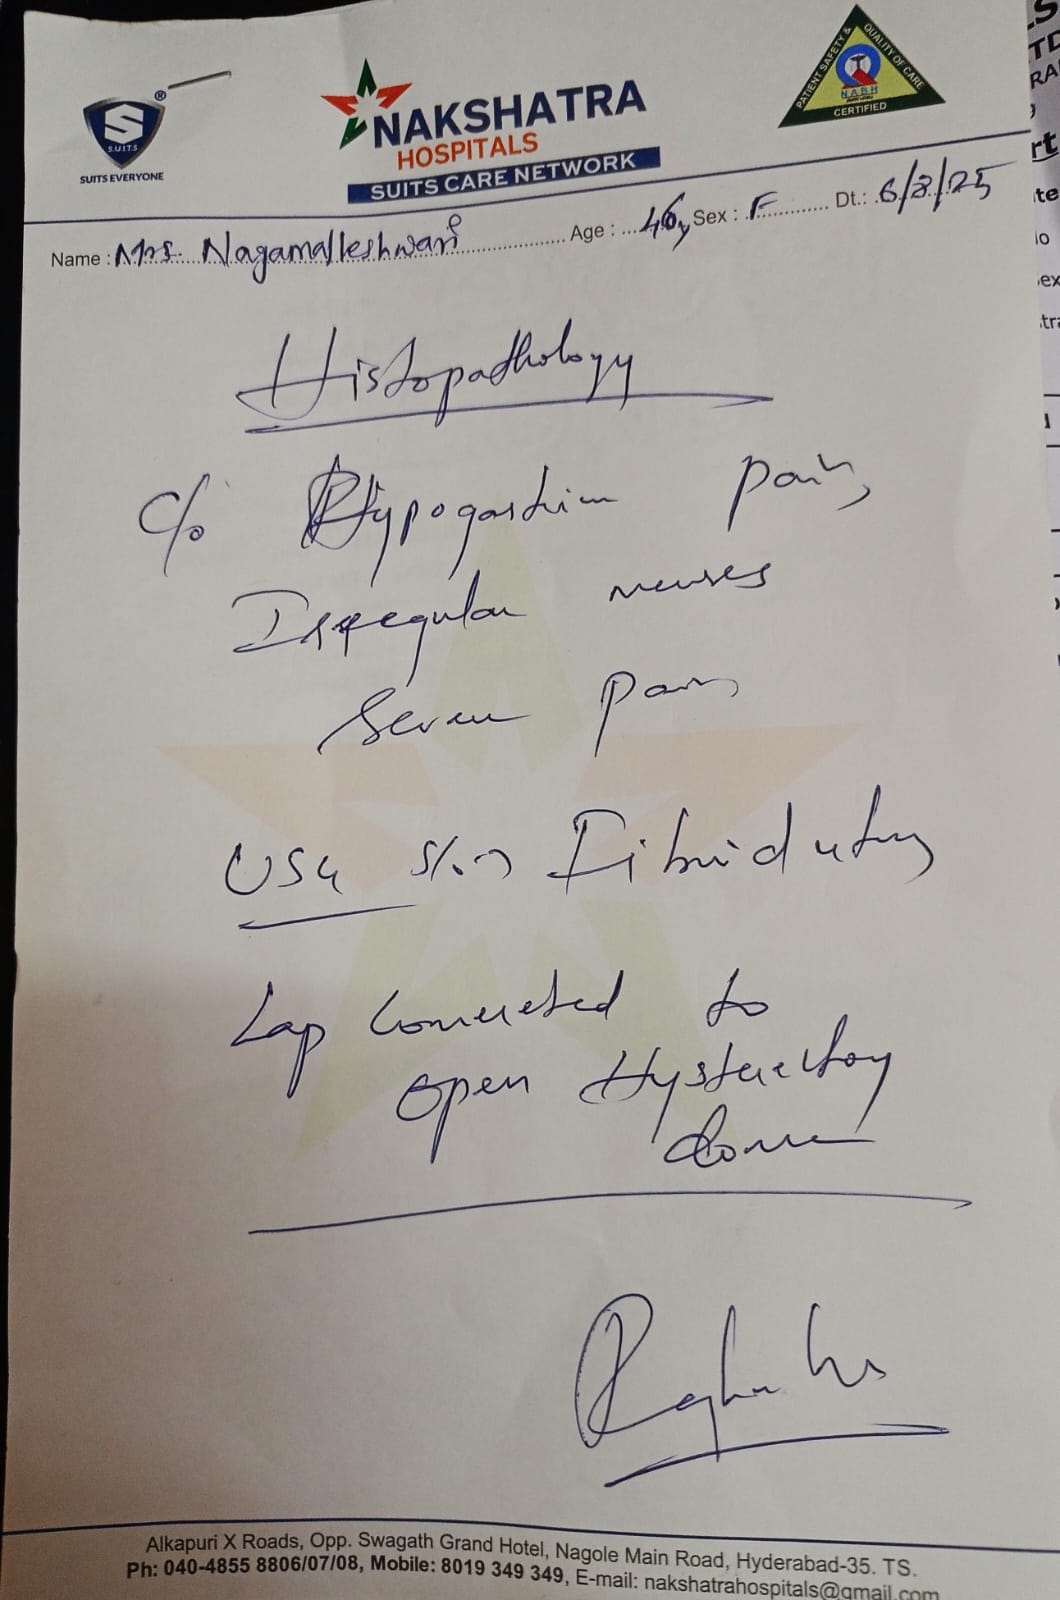 S
S.U.I.T.S
SUITS EVERYONE
NAKSHATRA
HOSPITALS
SUITS CARE NETWORK
PATIENT SAFETY & QUALITY OF CARE
NABH
CERTIFIED
Name : Mrs. Nagamalleshwari Age : 46y Sex : F Dt.: 6/8/25
Histopathology
c/o Hypogastrium pain,
Irregular menses
Severe pain
USG s/o → Fibroid uterus
Lap converted to
open Hysterectomy
done
Alkapuri X Roads, Opp. Swagath Grand Hotel, Nagole Main Road, Hyderabad-35. TS.
Ph: 040-4855 8806/07/08, Mobile: 8019 349 349, E-mail: nakshatrahospitals@gmail.com